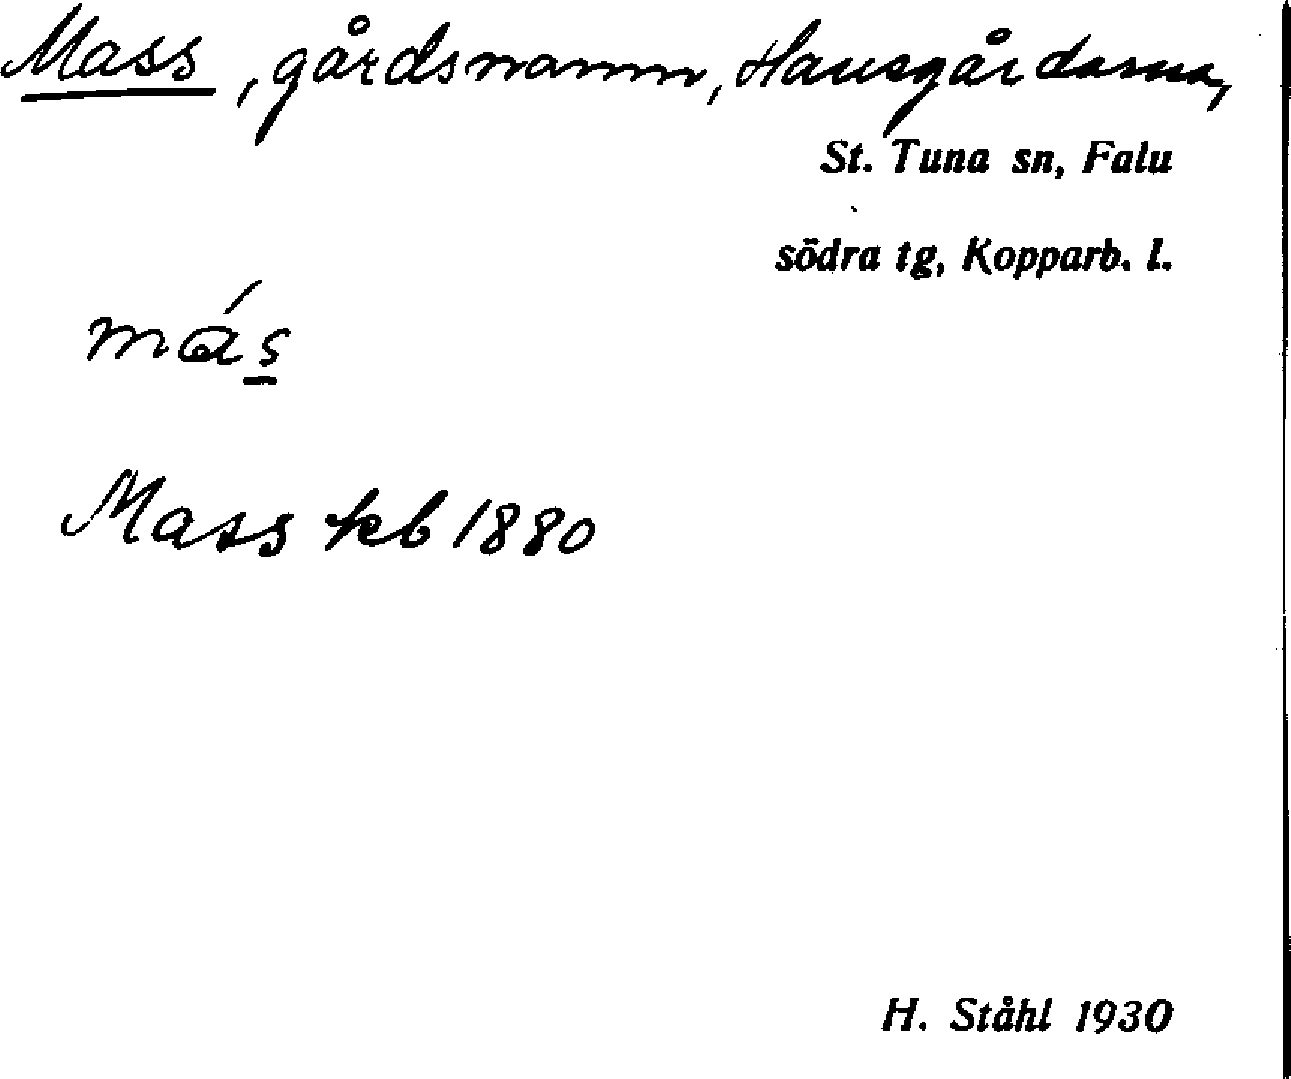 Mass, gårdsnamn, Hausgårdarna,
St. Tuna sn, Falu
södra tg, Kopparb. l.
más
Mass kb 1880
H. Ståhl 1930